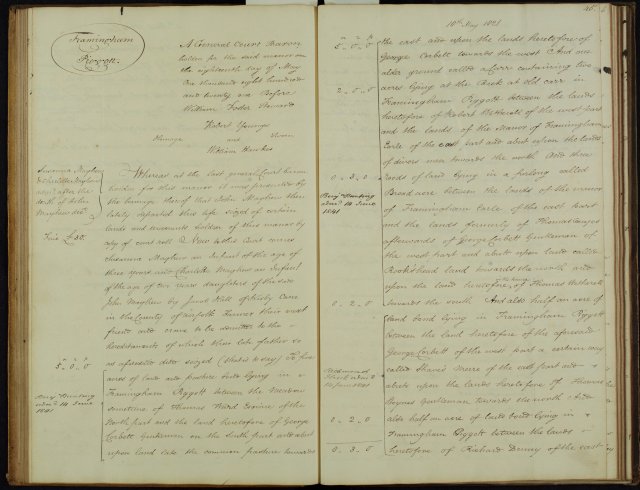 Framingham
Pygott.
A General Court Baron
holden for the said manor on
the eighteenth day of May
One thousand eight hundred
and twenty one Before
William Foster Steward
Robert Youngs
Homage and Sworn
William Hawkes
Susanna Mayhew
& Charlotte Mayhew
adm.d after the
death of John
Mayhew dec.d
Fine £50.
Whereas at the last general Court baron
holden for this manor it was presented by
the homage thereof that John Mayhew then
lately departed this life seized of certain
lands and tenements holden of this manor by
copy of court roll Now to this Court came
Susanna Mayhew an Infant of the age of
three years and Charlotte Mayhew an Infant
of the age of one year daughters of the said
John Mayhew by
in the County of Norfolk Farmer their next
friend and crave to be admitted to the
hereditaments of which their late father so
as aforesaid died seized (that is to say) To five
acres of land and pasture lying in
Framingham Pygott between the
sometime of Thomas Ward Esquire of the
North part and the land heretofore of George
Corbett Gentleman on the South part and abut
upon land late the common pasture towards
5 . 0 . 0
adm.d 14 June
1841
18th May 1821
the east and upon the lands heretofore of
George Corbett towards the west And one
alder ground called a Carr containing two
acres lying at the at old carr in
Framingham Pygott between the lands
heretofore of Robert of the west part
and the lands of the Manor of Framingham
Earle of the east part and abut upon the lands
of divers men towards the north And three
roods of land lying in a furlong called
Broad acre between the lands of the manor
of Framingham Earle of the east part
and the lands formerly of Thomas
afterwards of George Corbett Gentleman of
the west part and abuts upon land called
land towards the north and
upon the land heretofore of Thomas
towards the south And also half an acre of
land bond lying in Framingham Pygott
between the land heretofore of the aforesaid
George Corbett of the west part a certain way
called Mere of the east part and
abuts upon the lands heretofore of Thomas
Gentleman towards the north And
also half an acre of land bond lying in
Framingham Pygott between the lands
heretofore of Richard Denny of the east
5 . 0 . 0
2 . 0 . 0
0 . 3 . 0
adm.d 14 June
1841
0 . 2 . 0
14 June 1841
0 . 2 . 0
0 . 3 . 0